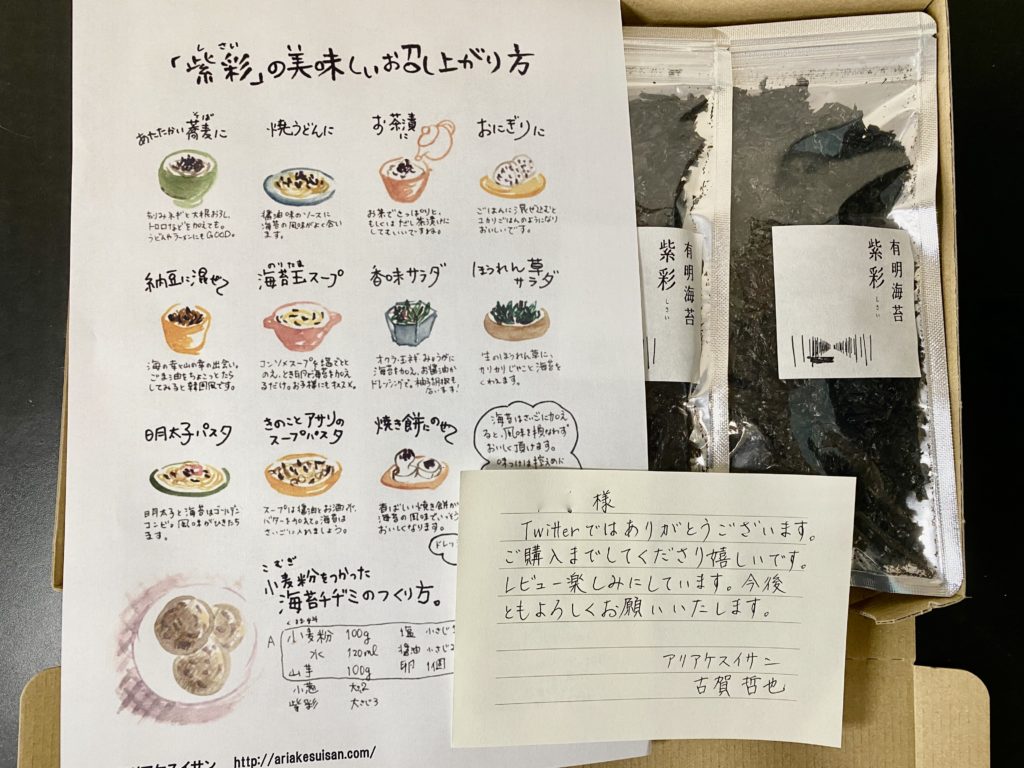 「紫彩」の美味しいお召し上がり方
しさい
あたたかい蕎麦に
そば
刻みネギと大根おろし、
トロロなどを加えても。
うどんやラーメンにもGOOD。
焼うどんに
醤油味のソースに
海苔の風味がよく合い
ます。
お茶漬に
お茶でさっぱりと、
もしくはだし茶漬けに
してもいいですよね。
おにぎりに
ごはんに混ぜ込むと
ユカリごはんのようになり
おいしいです。
納豆に混ぜて
海の幸と山の幸の出会い。
ごま油をちょこっとたら
してみると韓国風です。
海苔玉スープ
のりたま
コンソメスープを塩でとと
のえ、とき卵と海苔を加え
るだけ。お子様にもオススメ。
香味サラダ
オクラ・玉ネギ・みょうがに
海苔を加え、お醤油か
ドレッシングで。柚子胡椒も
合います!
ほうれん草
サラダ
生のほうれん草に、
カリカリじゃこと海苔を
くわえます。
明太子パスタ
明太子と海苔はゴールデン
コンビ。風味がひきたち
ます。
きのことアサリの
スープパスタ
スープは醤油とお酒、水、
バターを加えて。海苔は
さいごに入れましょう。
焼き餅にのせて
香ばしい焼き餅が
海苔の風味でいっそう
おいしくなります。
海苔はさいごに加え
ると、風味を損なわず
おいしく頂けます。
味つけは控えめに
ドレッ
こむぎ
小麦粉をつかった
海苔チヂミのつくり方。
A
小麦粉 100g 塩 小さじ
水 120ml 醤油 小さじ2
山芋 100g 卵 1個
小葱 大2
紫彩 大さじ3
アリアケスイサン http://ariakesuisan.com/
有明海苔
紫彩
しさい
有明海苔
紫彩
しさい
様
Twitterではありがとうございます。
ご購入までしてくださり嬉しいです。
レビュー楽しみにしています。今後
ともよろしくお願いいたします。
アリアケスイサン
古賀 哲也